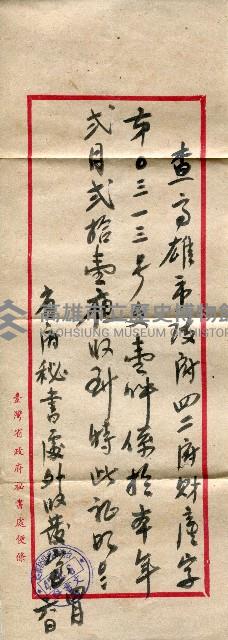 查高雄市政府四二府財產字
第0三一三号文壹件係於本年
弍月弍拾壹號收到特此証明
省府秘書處外收發
臺灣省政府秘書處便條
高雄市立歷史博物館
KAOHSIUNG MUSEUM OF HISTORY